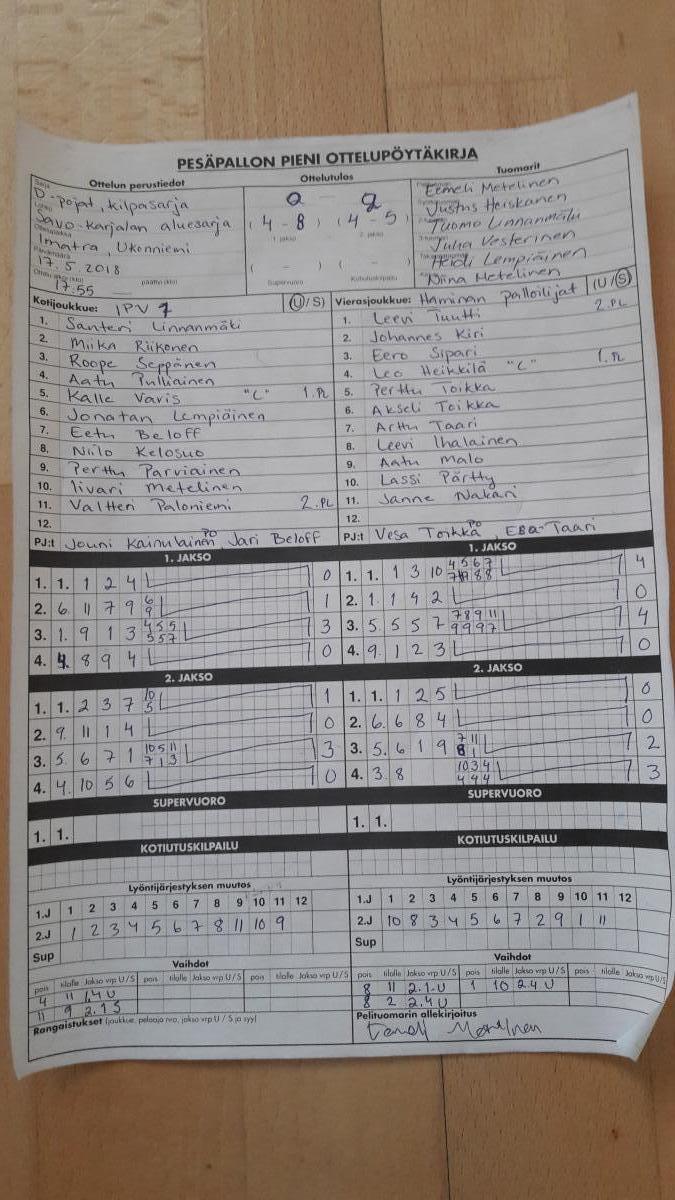 PESÄPALLON PIENI OTTELUPÖYTÄKIRJA
Ottelun perustiedot Ottelutulos Tuomarit
D-pojat, kilpasarja 0 - 2 Eemeli Metelinen
Savo-Karjalan aluesarja ( 4 - 8 ) ( 4 - 5 ) Justus Heiskanen
1. jakso 2. jakso Tuomo Linnanmäki
Imatra, Ukonniemi Julia Vesterinen
17.5.2018 ( - ) ( - ) Heidi Lempiäinen
17.55 Supervuoro Kotiutuskilpailu Niina Metelinen
Kotijoukkue: IPV 7 (U/S) Vierasjoukkue: Haminan Palloilijat (U/S)
1. Santeri Linnanmäki 1. Leevi Tuutti 2.PL
2. Miika Riikonen 2. Johannes Kiri
3. Roope Seppänen 3. Eero Sipari
4. Aatu Pulliainen 4. Leo Heikkilä "C" 1.PL
5. Kalle Varis "C" 1.PL 5. Perttu Toikka
6. Jonatan Lempiäinen 6. Akseli Toikka
7. Eetu Beloff 7. Arttu Taari
8. Niilo Kelosuo 8. Leevi Ihalainen
9. Perttu Parviainen 9. Aatu Malo
10. Iivari Metelinen 10. Lassi Pärtty
11. Valtteri Paloniemi 2.PL 11. Janne Nakari
12. 12.
PJ:t Jouni Kainulainen PO Jari Beloff PJ:t Vesa Toikka PO, Esa Taari
1. JAKSO 1. JAKSO
1. 1. 1 2 4 0 1. 1. 1 3 10 4 5 6 7 4
2. 6. 11 7 9 6 9 1 2. 1. 1 4 2 0
3. 1. 9 1 3 4 5 5 5 5 7 3 3. 5. 5 5 7 7 8 9 11 9 9 9 7 4
4. 4. 8 9 4 0 4. 9. 1 2 3 0
2. JAKSO 2. JAKSO
1. 1. 2 3 7 10 5 1 1. 1. 1 2 5 0
2. 9. 11 1 4 0 2. 6. 6 8 4 0
3. 5. 6 7 1 10 5 11 7 1 3 3 3. 5. 6 1 9 7 11 8 1 2
4. 4. 10 5 6 0 4. 3. 8 10 3 4 4 4 4 3
SUPERVUORO SUPERVUORO
1. 1. 1. 1.
KOTIUTUSKILPAILU KOTIUTUSKILPAILU
Lyöntijärjestyksen muutos Lyöntijärjestyksen muutos
1.J 1 2 3 4 5 6 7 8 9 10 11 12 1.J 1 2 3 4 5 6 7 8 9 10 11 12
2.J 1 2 3 4 5 6 7 8 11 10 9 2.J 10 8 3 4 5 6 7 2 9 1 11
Sup Sup
Vaihdot Vaihdot
pois tilalle Jakso vrp U/S pois tilalle Jakso vrp U/S pois tilalle Jakso vrp U/S pois tilalle Jakso vrp U/S pois tilalle Jakso vrp U/S pois tilalle Jakso vrp U/S
4 11 1.4 U 8 11 2.1.U 1 10 2.4 U
11 9 2.1 S 8 2 2.4 U
Rangaistukset (joukkue, pelaaja nro, jakso vrp U / S ja syy) Pelituomarin allekirjoitus
Eemeli Metelinen